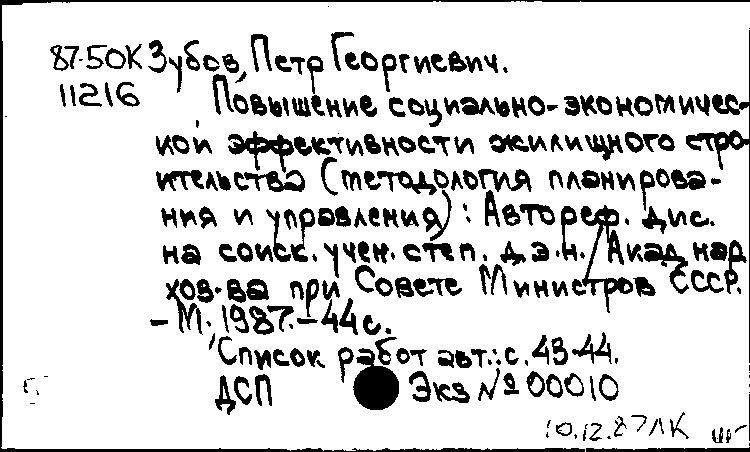 87-50К Зубов, Петр Георгиевич.
11216 Повышение социально-экономичес-
кой эффективности жилищного стро-
ительства (методология планирова-
ния и управления): Автореф. дис.
на соиск. учен. степ. д.э.н./Акад. нар.
хоз-ва при Совете Министров СССР.
– М. 1987. – 44 с.
Список работ авт.: с. 43-44.
ДСП Экз № 00010
10.12.87 ЛК